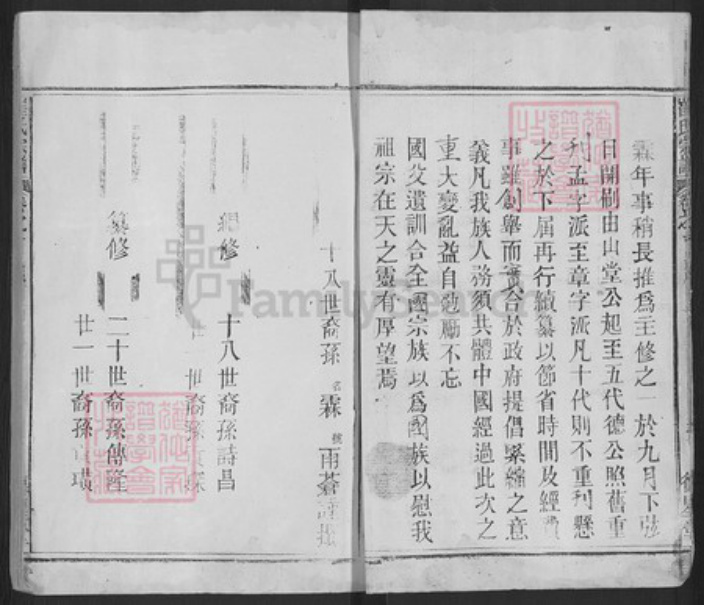 霖年事稍長推為主修之一於九月下弦
日開刷由山堂公起至五代德公照舊重
刊孟字派至章字派凡十代則不重刊懸
之於下屆再行續纂以節省時間及經費
事雖創舉而實合於政府提倡緊縮之意
義凡我族人務須共體中國經過此次之
重大變亂益自勉勵不忘
國父遺訓合全國宗族以為國族以慰我
祖宗在天之靈有厚望焉
十八世裔孫 名 霖 號 雨蒼謹撰
十八世裔孫詩昌
世裔孫
纂修 二十世裔孫傳隆
廿一世裔孫 璜
FamilySearch